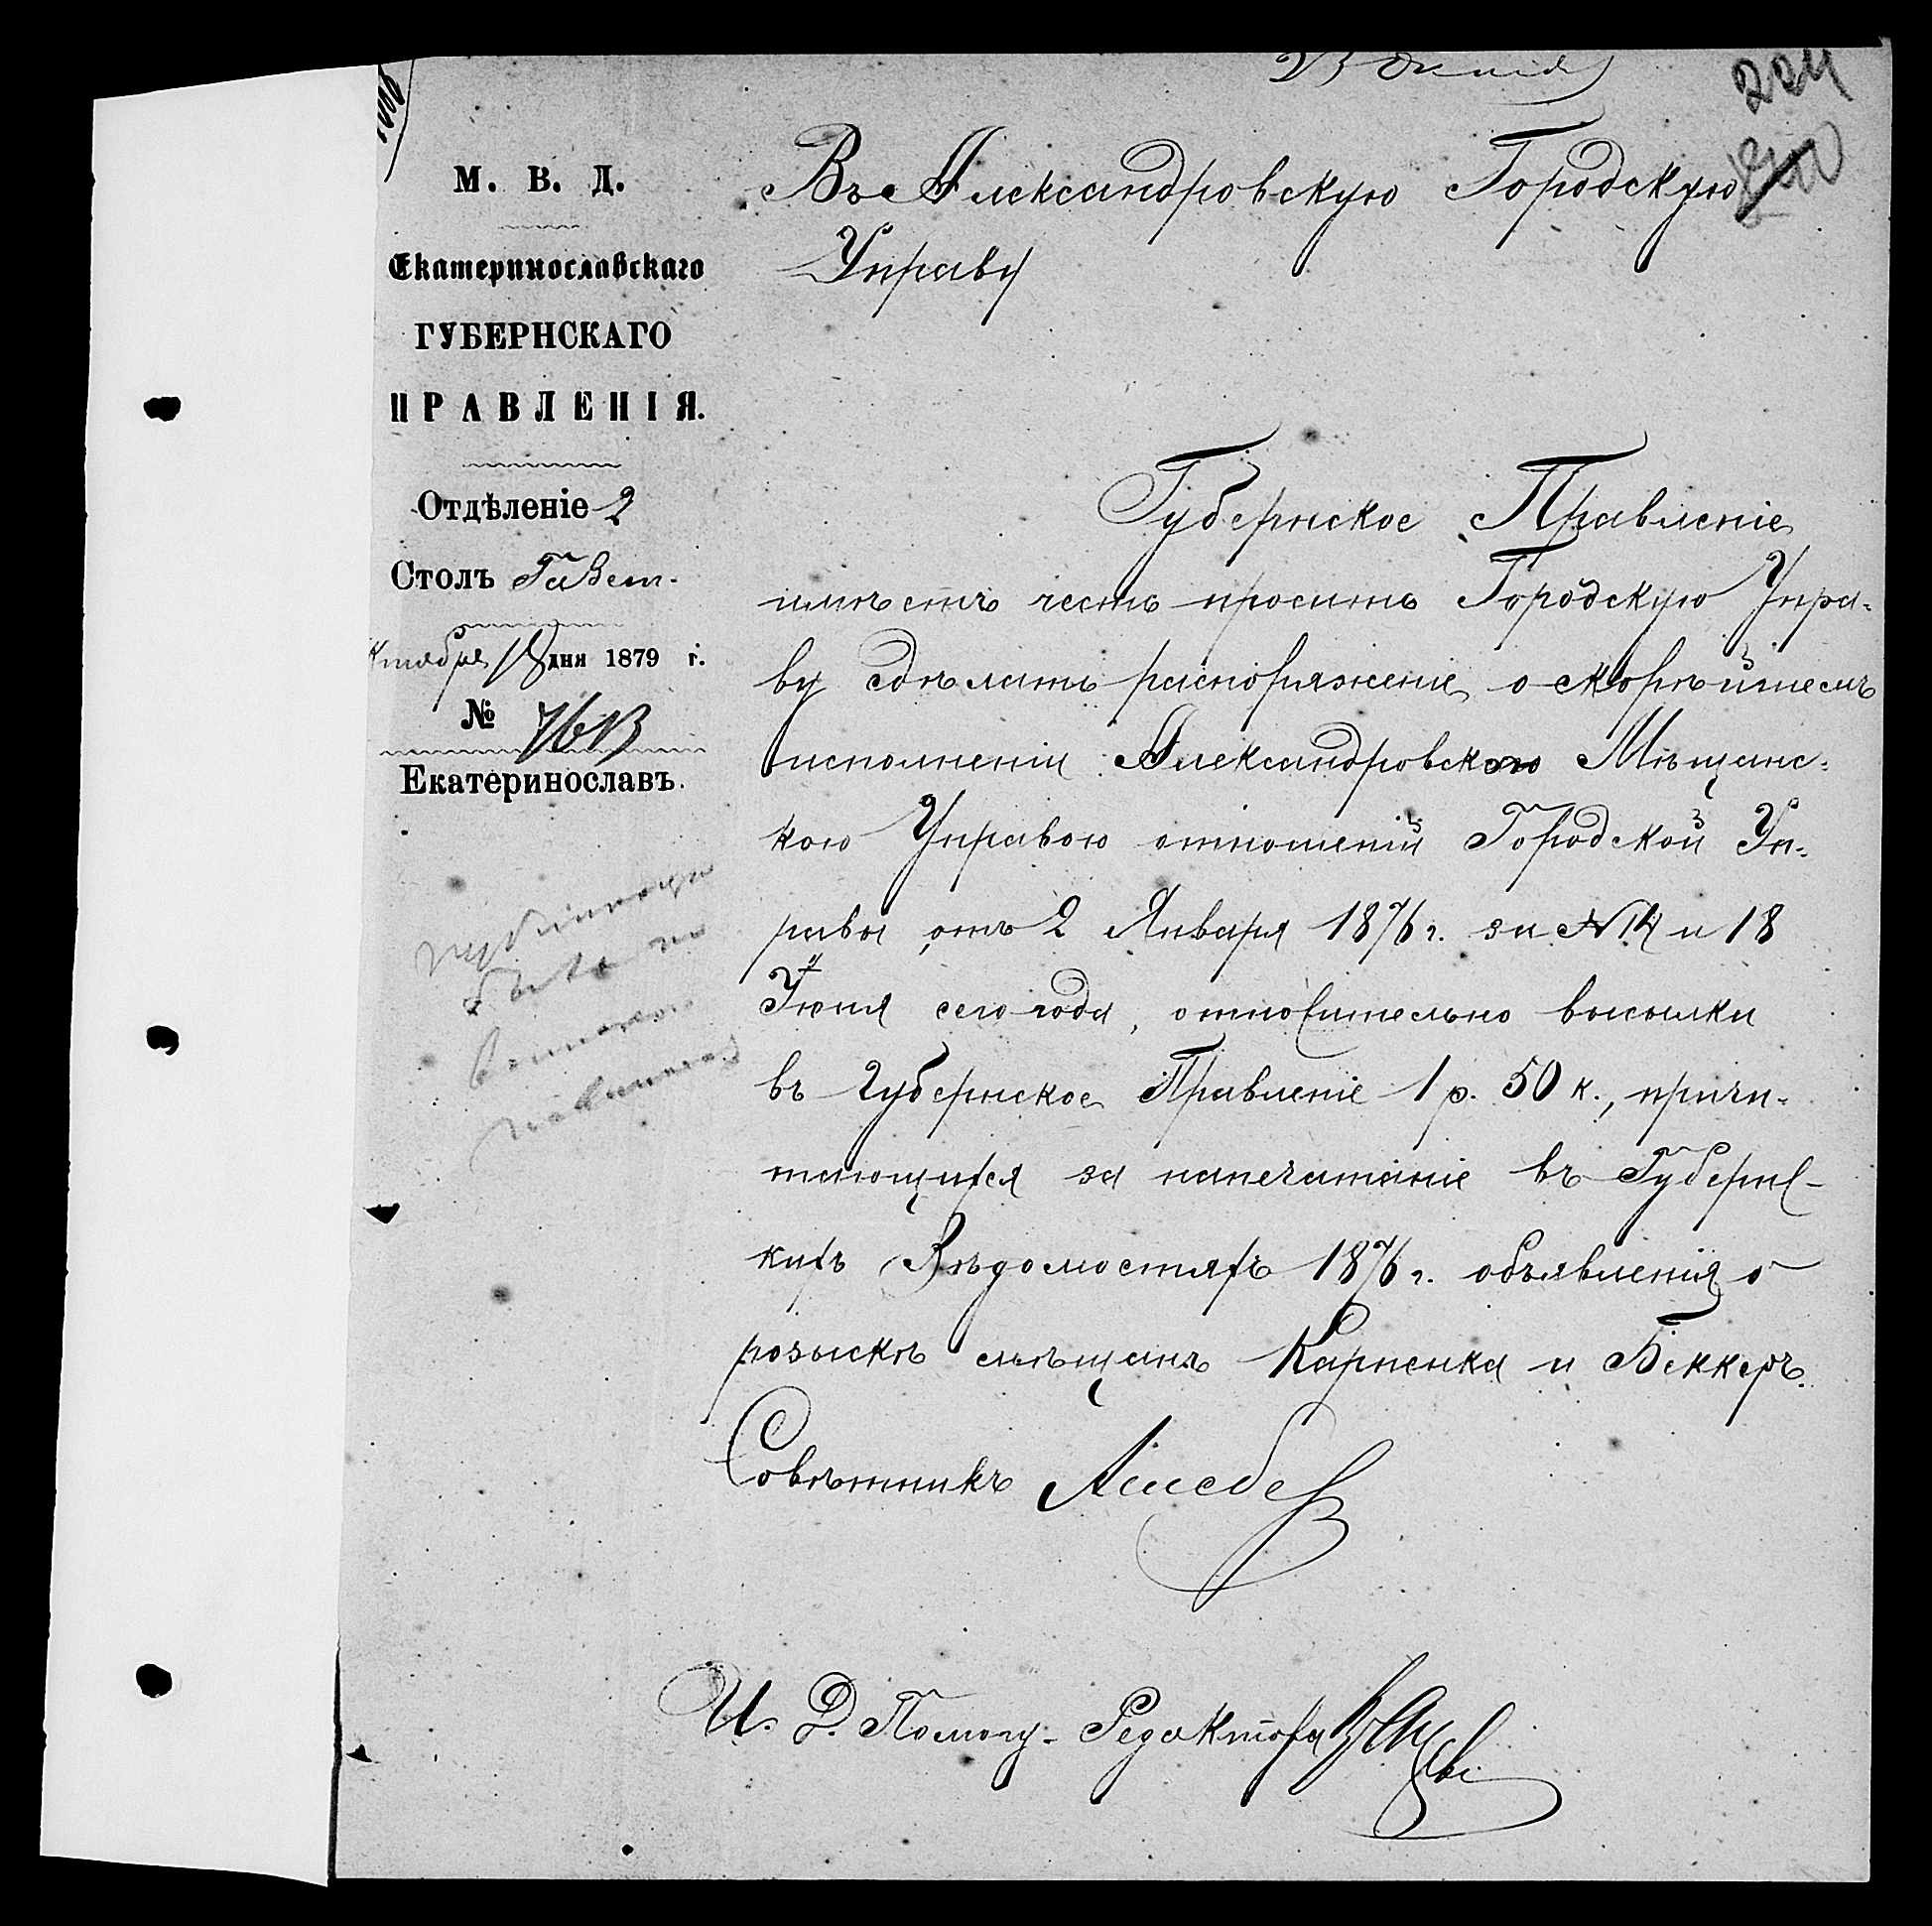 23 Октяб
224
М. В. Д.
Екатеринославскаго
ГУБЕРНСКАГО
ПРАВЛЕНІЯ.
Отдѣленіе 2
Столъ Газет.
ктября 18 дня 1879 г.
№ 7613
Екатеринославъ.
Въ Александровскую Городскую
Управу
Губернское Правленіе
имѣетъ честь просить Городскую Упра-
ву сдѣлать распоряженіе о скорѣйшемъ
исполненіи Александровскою Мѣщанс-
кою Управою отношеній Городской Уп-
равы отъ 2 Января 1876 г. за № 14 и 18
Іюня сего года, относительно высылки
въ Губернское Правленіе 1 р. 50 к., причи-
тающихся за напечатаніе въ Губернс-
кихъ Вѣдомостяхъ 1876 г. объявленія о
розыскѣ мѣщанъ Карпенка и Беккеръ.
Совѣтникъ
И. Д. Помощ. Редактора